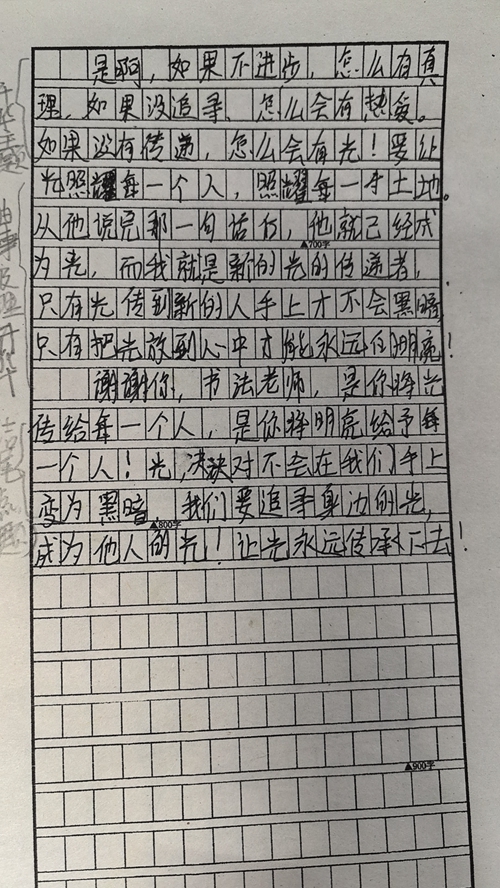 是啊，如果不进步，怎么有真
理，如果没追寻、怎么会有热爱。
如果没有传递，怎么会有光！要让
光照耀每一个人，照耀每一手土地。
从他说完那一句话后，他就已经成
▲700字
为光，而我就是新的光的传递者，
只有光传到新的人手上才不会黑暗，
只有把光放到心中才能永远在明亮！
谢谢你，书法老师，是你将光
传给每一个人，是你将明亮给予每
一个人！光，决对不会在我们手上
变为黑暗，我们要追寻身边的光，
▲800字
成为他人的光！让光永远传承下去！
▲900字